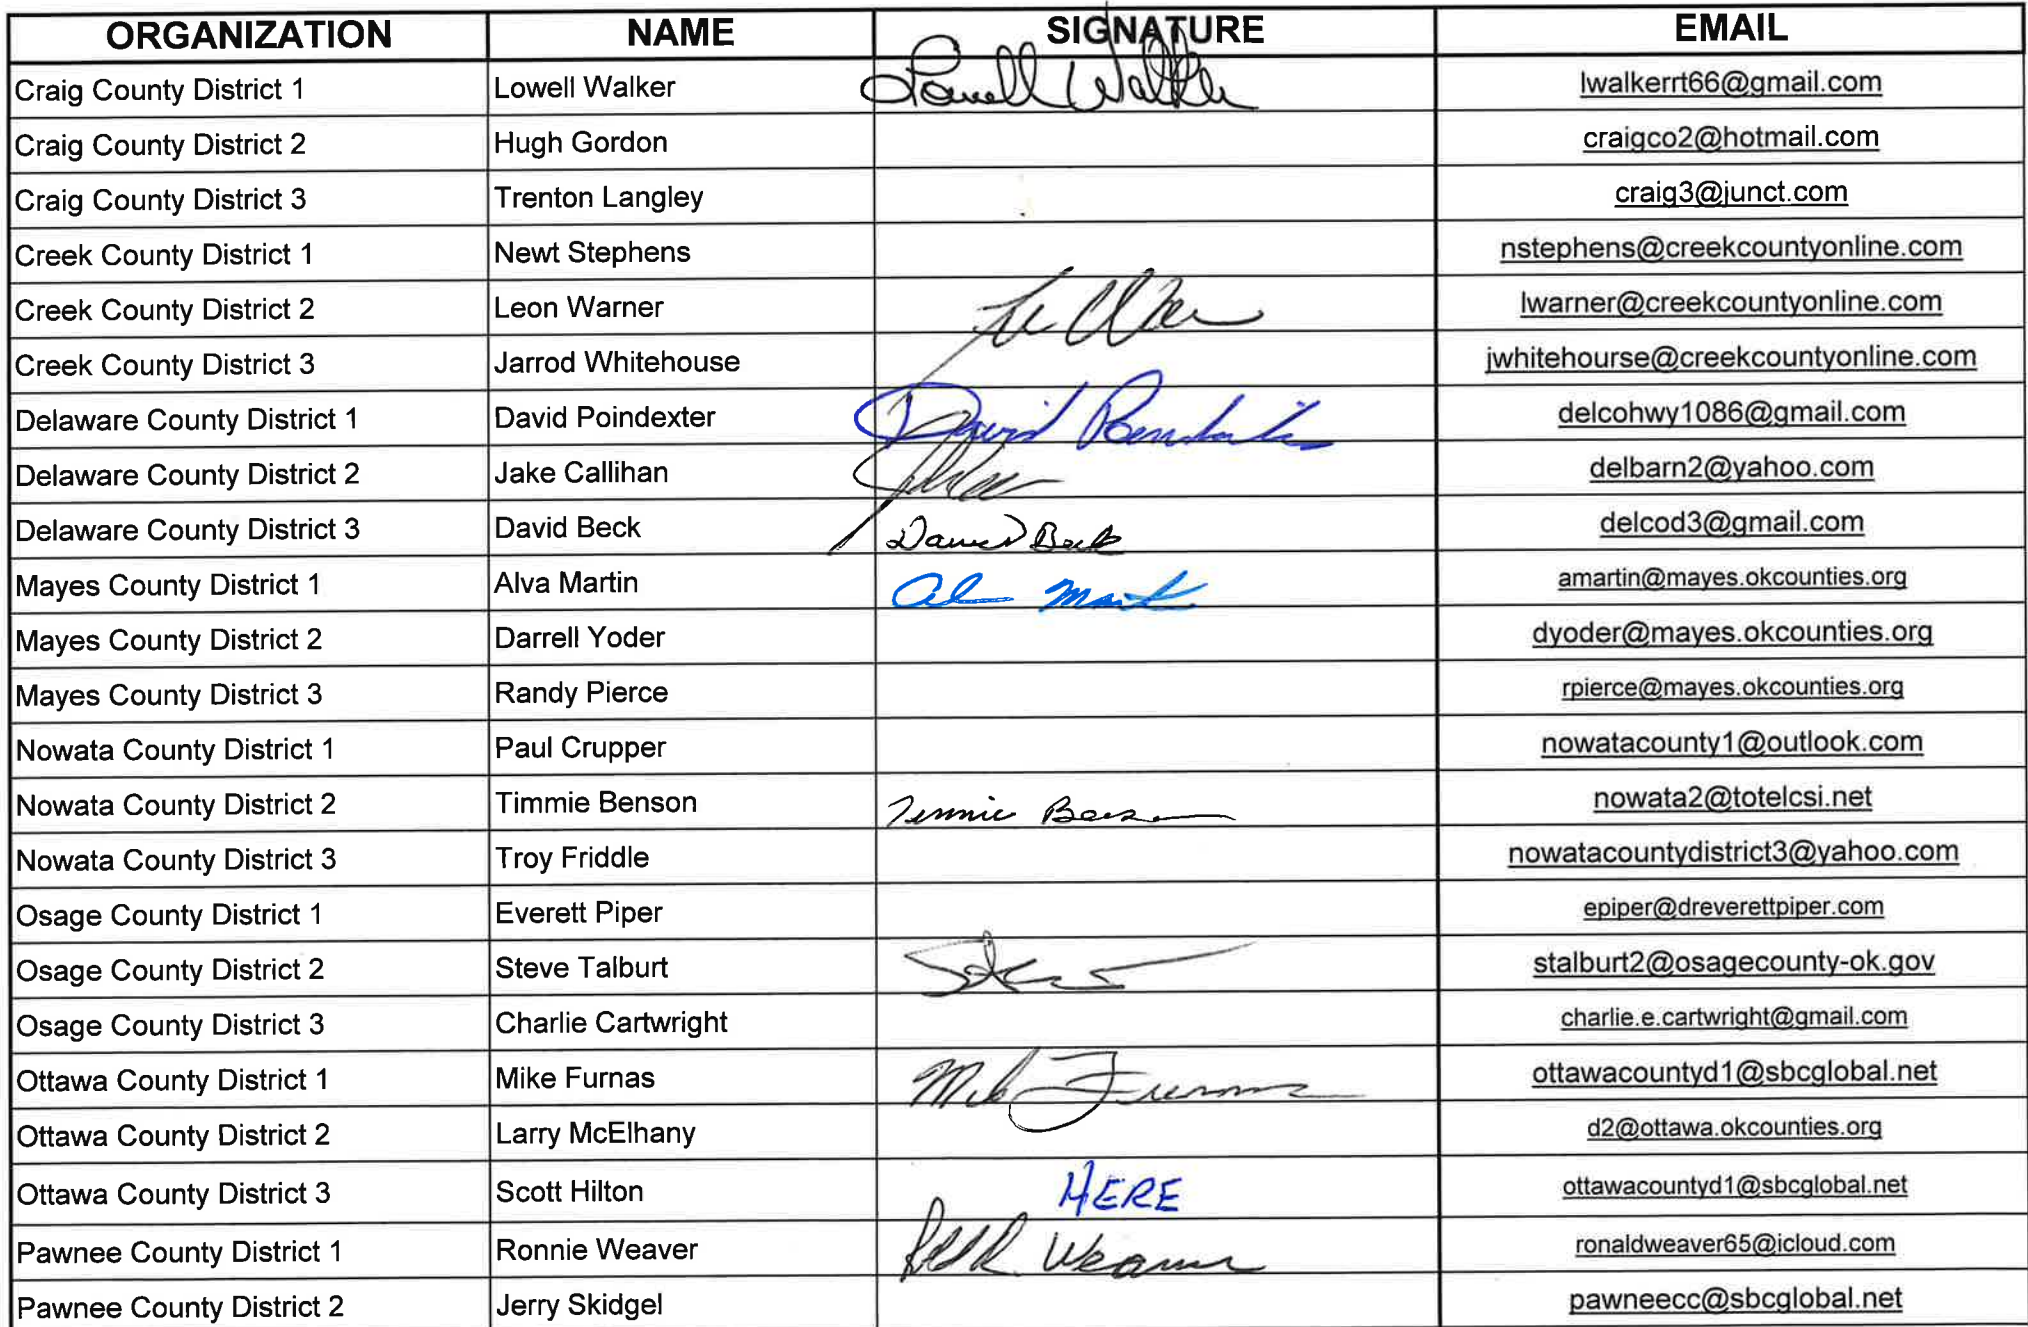 ORGANIZATION NAME SIGNATURE EMAIL
Craig County District 1 Lowell Walker Lowell Walker lwalkerrt66@gmail.com
Craig County District 2 Hugh Gordon craigco2@hotmail.com
Craig County District 3 Trenton Langley craig3@junct.com
Creek County District 1 Newt Stephens nstephens@creekcountyonline.com
Creek County District 2 Leon Warner lwarner@creekcountyonline.com
Creek County District 3 Jarrod Whitehouse jwhitehourse@creekcountyonline.com
Delaware County District 1 David Poindexter David Poindexter delcohwy1086@gmail.com
Delaware County District 2 Jake Callihan delbarn2@yahoo.com
Delaware County District 3 David Beck David Beck delcod3@gmail.com
Mayes County District 1 Alva Martin Alva Martin amartin@mayes.okcounties.org
Mayes County District 2 Darrell Yoder dyoder@mayes.okcounties.org
Mayes County District 3 Randy Pierce rpierce@mayes.okcounties.org
Nowata County District 1 Paul Crupper nowatacounty1@outlook.com
Nowata County District 2 Timmie Benson Timmie Benson nowata2@totelcsi.net
Nowata County District 3 Troy Friddle nowatacountydistrict3@yahoo.com
Osage County District 1 Everett Piper epiper@dreverettpiper.com
Osage County District 2 Steve Talburt stalburt2@osagecounty-ok.gov
Osage County District 3 Charlie Cartwright charlie.e.cartwright@gmail.com
Ottawa County District 1 Mike Furnas Mike Furnas ottawacountyd1@sbcglobal.net
Ottawa County District 2 Larry McElhany d2@ottawa.okcounties.org
Ottawa County District 3 Scott Hilton HERE ottawacountyd1@sbcglobal.net
Pawnee County District 1 Ronnie Weaver Weaver ronaldweaver65@icloud.com
Pawnee County District 2 Jerry Skidgel pawneecc@sbcglobal.net